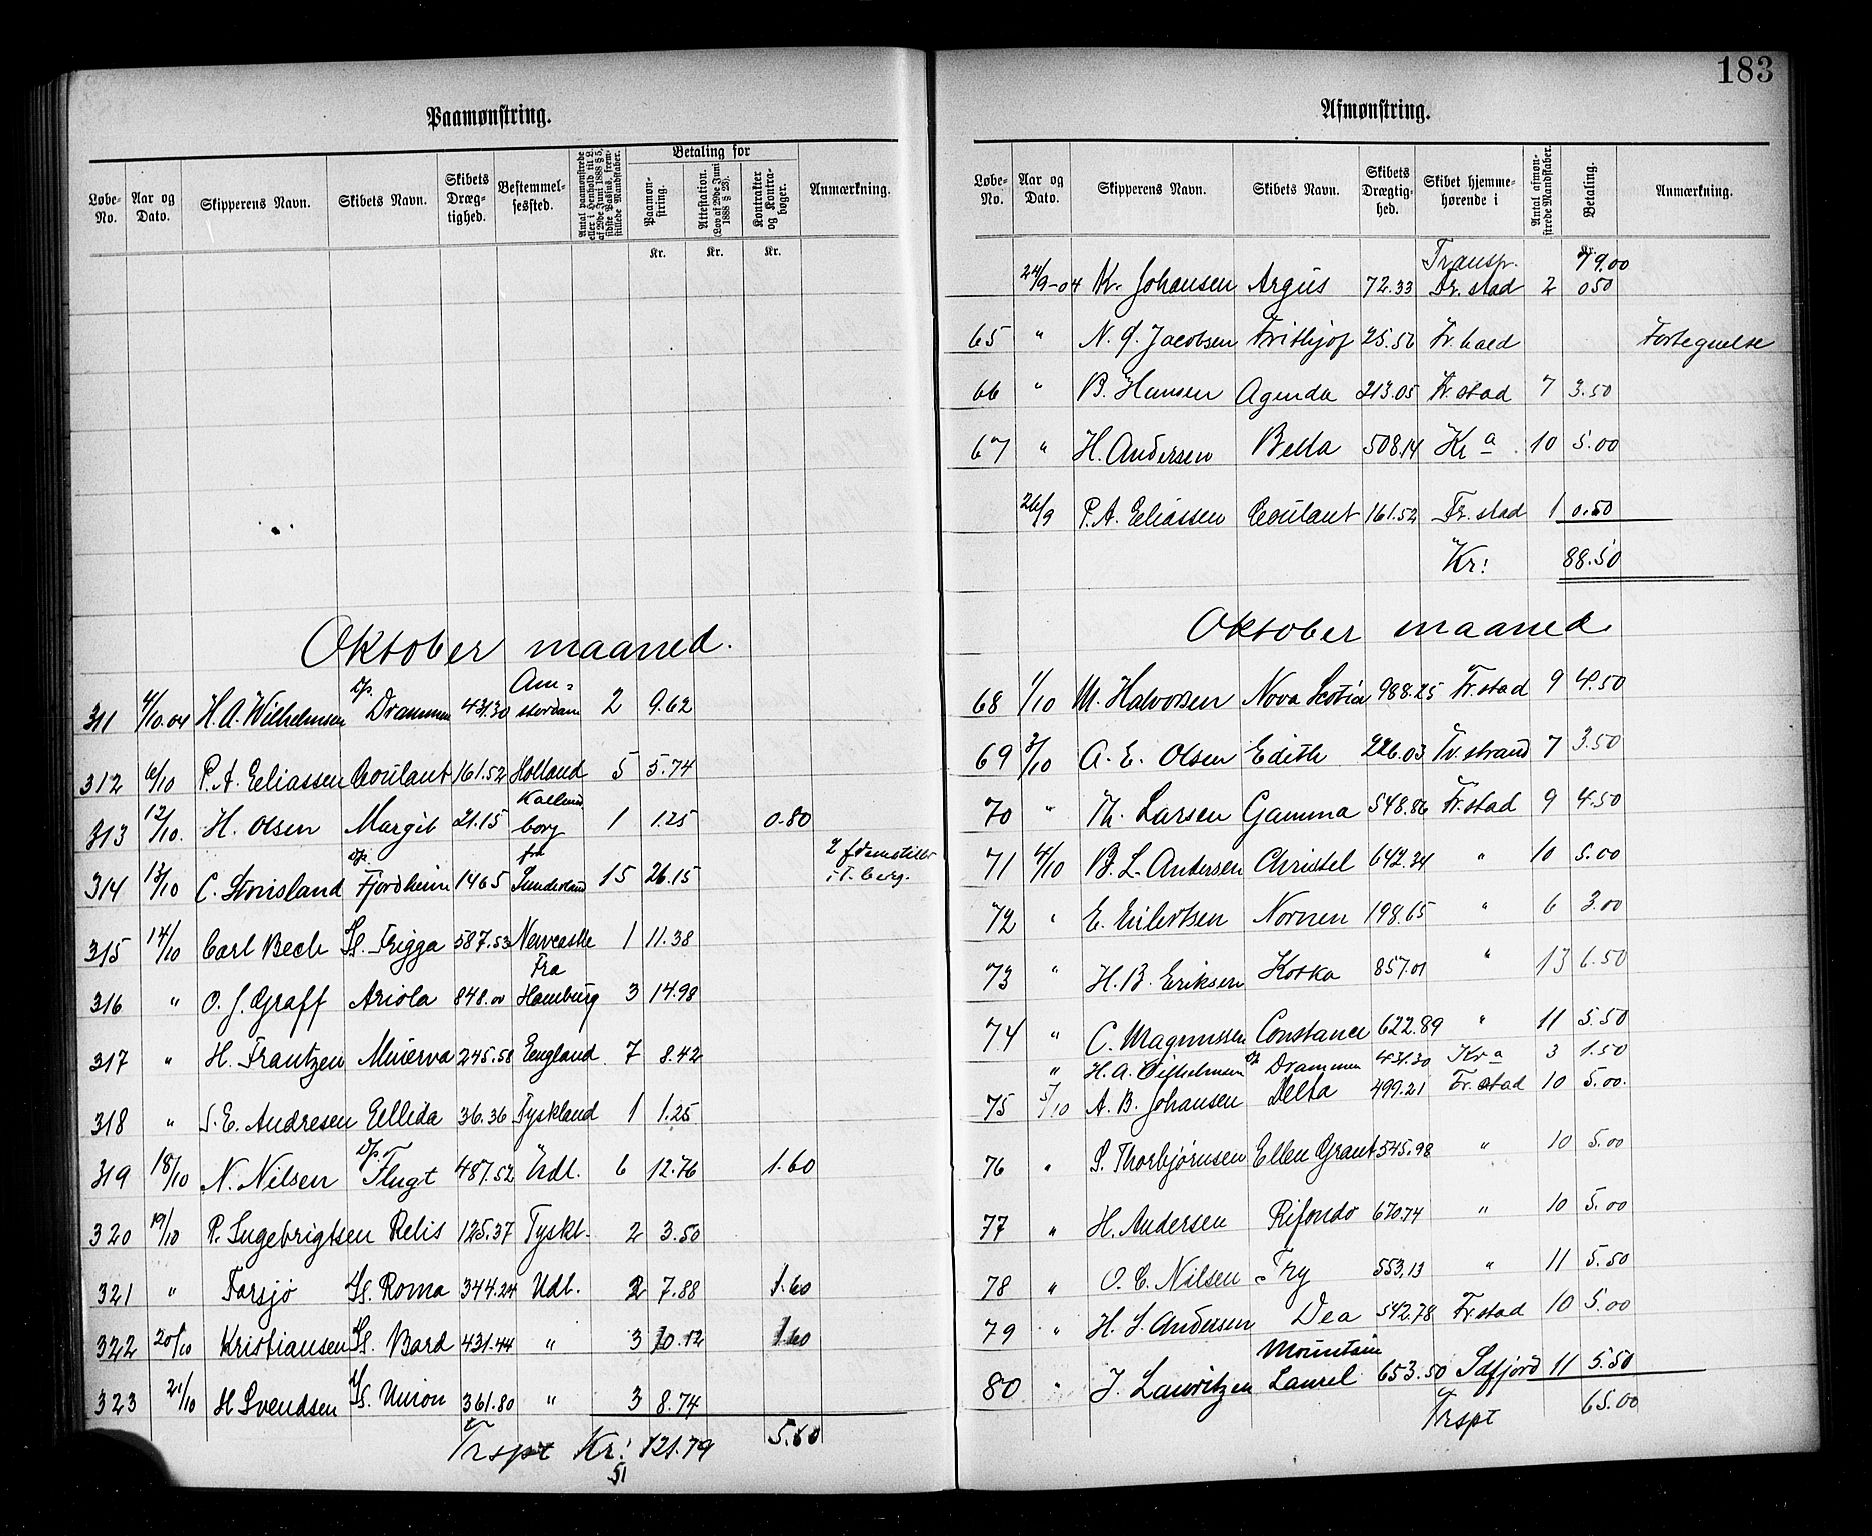 183
Paamønstring.
Løbe-No. | Aar og Dato. | Skipperens Navn. | Skibets Navn. | Skibets Dræg-tighed. | Bestemmel-sessted. | Antal paamønstrede eller i Henhold til L. af 29de Juni 1888 § 5, sidste Passus, frem-stillede Mandskaber. | Betaling for | Paamøn-string. | Attestation. (Lov af 29de Juni 1888 § 23). | Kontrakter og Kontra-bøger. | Anmærkning.
Kr. | Kr. | Kr.
Oktober maaned.
311 | 4/10.04 | H. A. Wilhelmsen | Dp. Drammen | 431.30 | Am=sterdam | 2 | 9.62
312 | 6/10 | P. A. Eliassen | Coulant | 161.52 | Holland | 5 | 5.74
313 | 12/10. | H. Olsen | Margit | 21.15 | Kallundborg | 1 | 1.25 | 0.80
314 | 13/10 | C. | Dp. Fjordheim | 1465 | fra Sunderland | 15 | 26.15 | 2 fremstillet i T.berg.
315 | 14/10 | Carl Bech | Ss. Frigga | 587.53 | Newcastle | 1 | 11.38
316 | " | O. J. Graff | Ariola | 848.00 | Fra Hamburg | 3 | 14.98
317 | " | H. Frantzen | Minerva | 245.58 | England | 7 | 8.42
318 | " | S. E. Andresen | Ellida | 36.36 | Tyskland | 1 | 1.25
319 | 18/10 | N. Nilsen | Dp. Flugt | 487.52 | Udl. | 6 | 12.76 | 1.60
320 | 19/10 | P. Ingebrigtsen | Relis | 125.37 | Tyskl. | 2 | 3.50
321 | " | Farsjø | Ss. Roma | 344.24 | Udl. | 2 | 7.88 | 1.60
322 | 20/10 | Kristiansen | Ss. Bard | 431.44 | " | 3 | 10.12 | 1.60
323 | 21/10 | H Svendsen | Ss. Union | 361.80 | " | 3 | 8.74
Trspt Kr: 121.79 | 5.60
51
Afmønstring.
Løbe-No. | Aar og Dato. | Skipperens Navn. | Skibets Navn. | Skibets Drægtig-hed. | Skibet hjemme-hørende i | Antal afmøn-strede Mandskaber. | Betaling. | Anmærkning.
Transp. | 79.00
24/9-04 | Kr. Johansen | Argus | 72.33 | Fr.stad | 2 | 0 50
65 | " | N. J. Jacobsen | Frithjof | 25.50 | Fr.hald | Fortegnelse
66 | " | B. Hansen | Agenda | 213.05 | Fr.stad | 7 | 3.50
67 | " | H. Andersen | Bella | 508.14 | Kr a | 10 | 5.00
26/9 | P. A. Eliassen | Coulant | 161.52 | Fr.stad | 1 | 0.50
Kr: | 88.50
Oktober maaned
68 | 1/10 | M. Halvorsen | Nova Scotia | 988.25 | Fr.stad | 9 | 4.50
69 | 3/10 | A. E. Olsen | Edith | 226.03 | Tv.strand | 7 | 3.50
70 | " | Th. Larsen | Gamma | 548.86 | Fr.stad | 9 | 4.50
71 | 4/10 | B. L. Andersen | Christel | 642.34 | " | 10 | 5.00
72 | " | E. Eilertsen | Nornen | 198.65 | " | 6 | 3.00
73 | " | H. B. Eriksen | Kotka | 857.01 | " | 13 | 6.50
74 | " | C. Magnussen | Constance | 622.89 | " | 11 | 5.50
" | H. A. Wilhelmsen | Dp Drammen | 431.30 | Kr a | 3 | 1.50
75 | 5/10 | A. B. Johansen | Delta | 499.21 | Fr.stad | 10 | 5.00.
76 | " | S. Thorbjørnsen | Ellen Grant | 545.98 | " | 10 | 5.00
77 | " | H. Andersen | Rifondo | 670.74 | " | 10 | 5.00
78 | " | O. C. Nilsen | Try | 553,13 | " | 11 | 5.50
79 | " | H. L. Andersen | Dea | 542.78 | Fr.stad | 10 | 5.00
80 | " | J. Lauritzen | Mountain Laurel | 653.50 | Sdfjord | 11 | 5.50
Trspt | 65.00